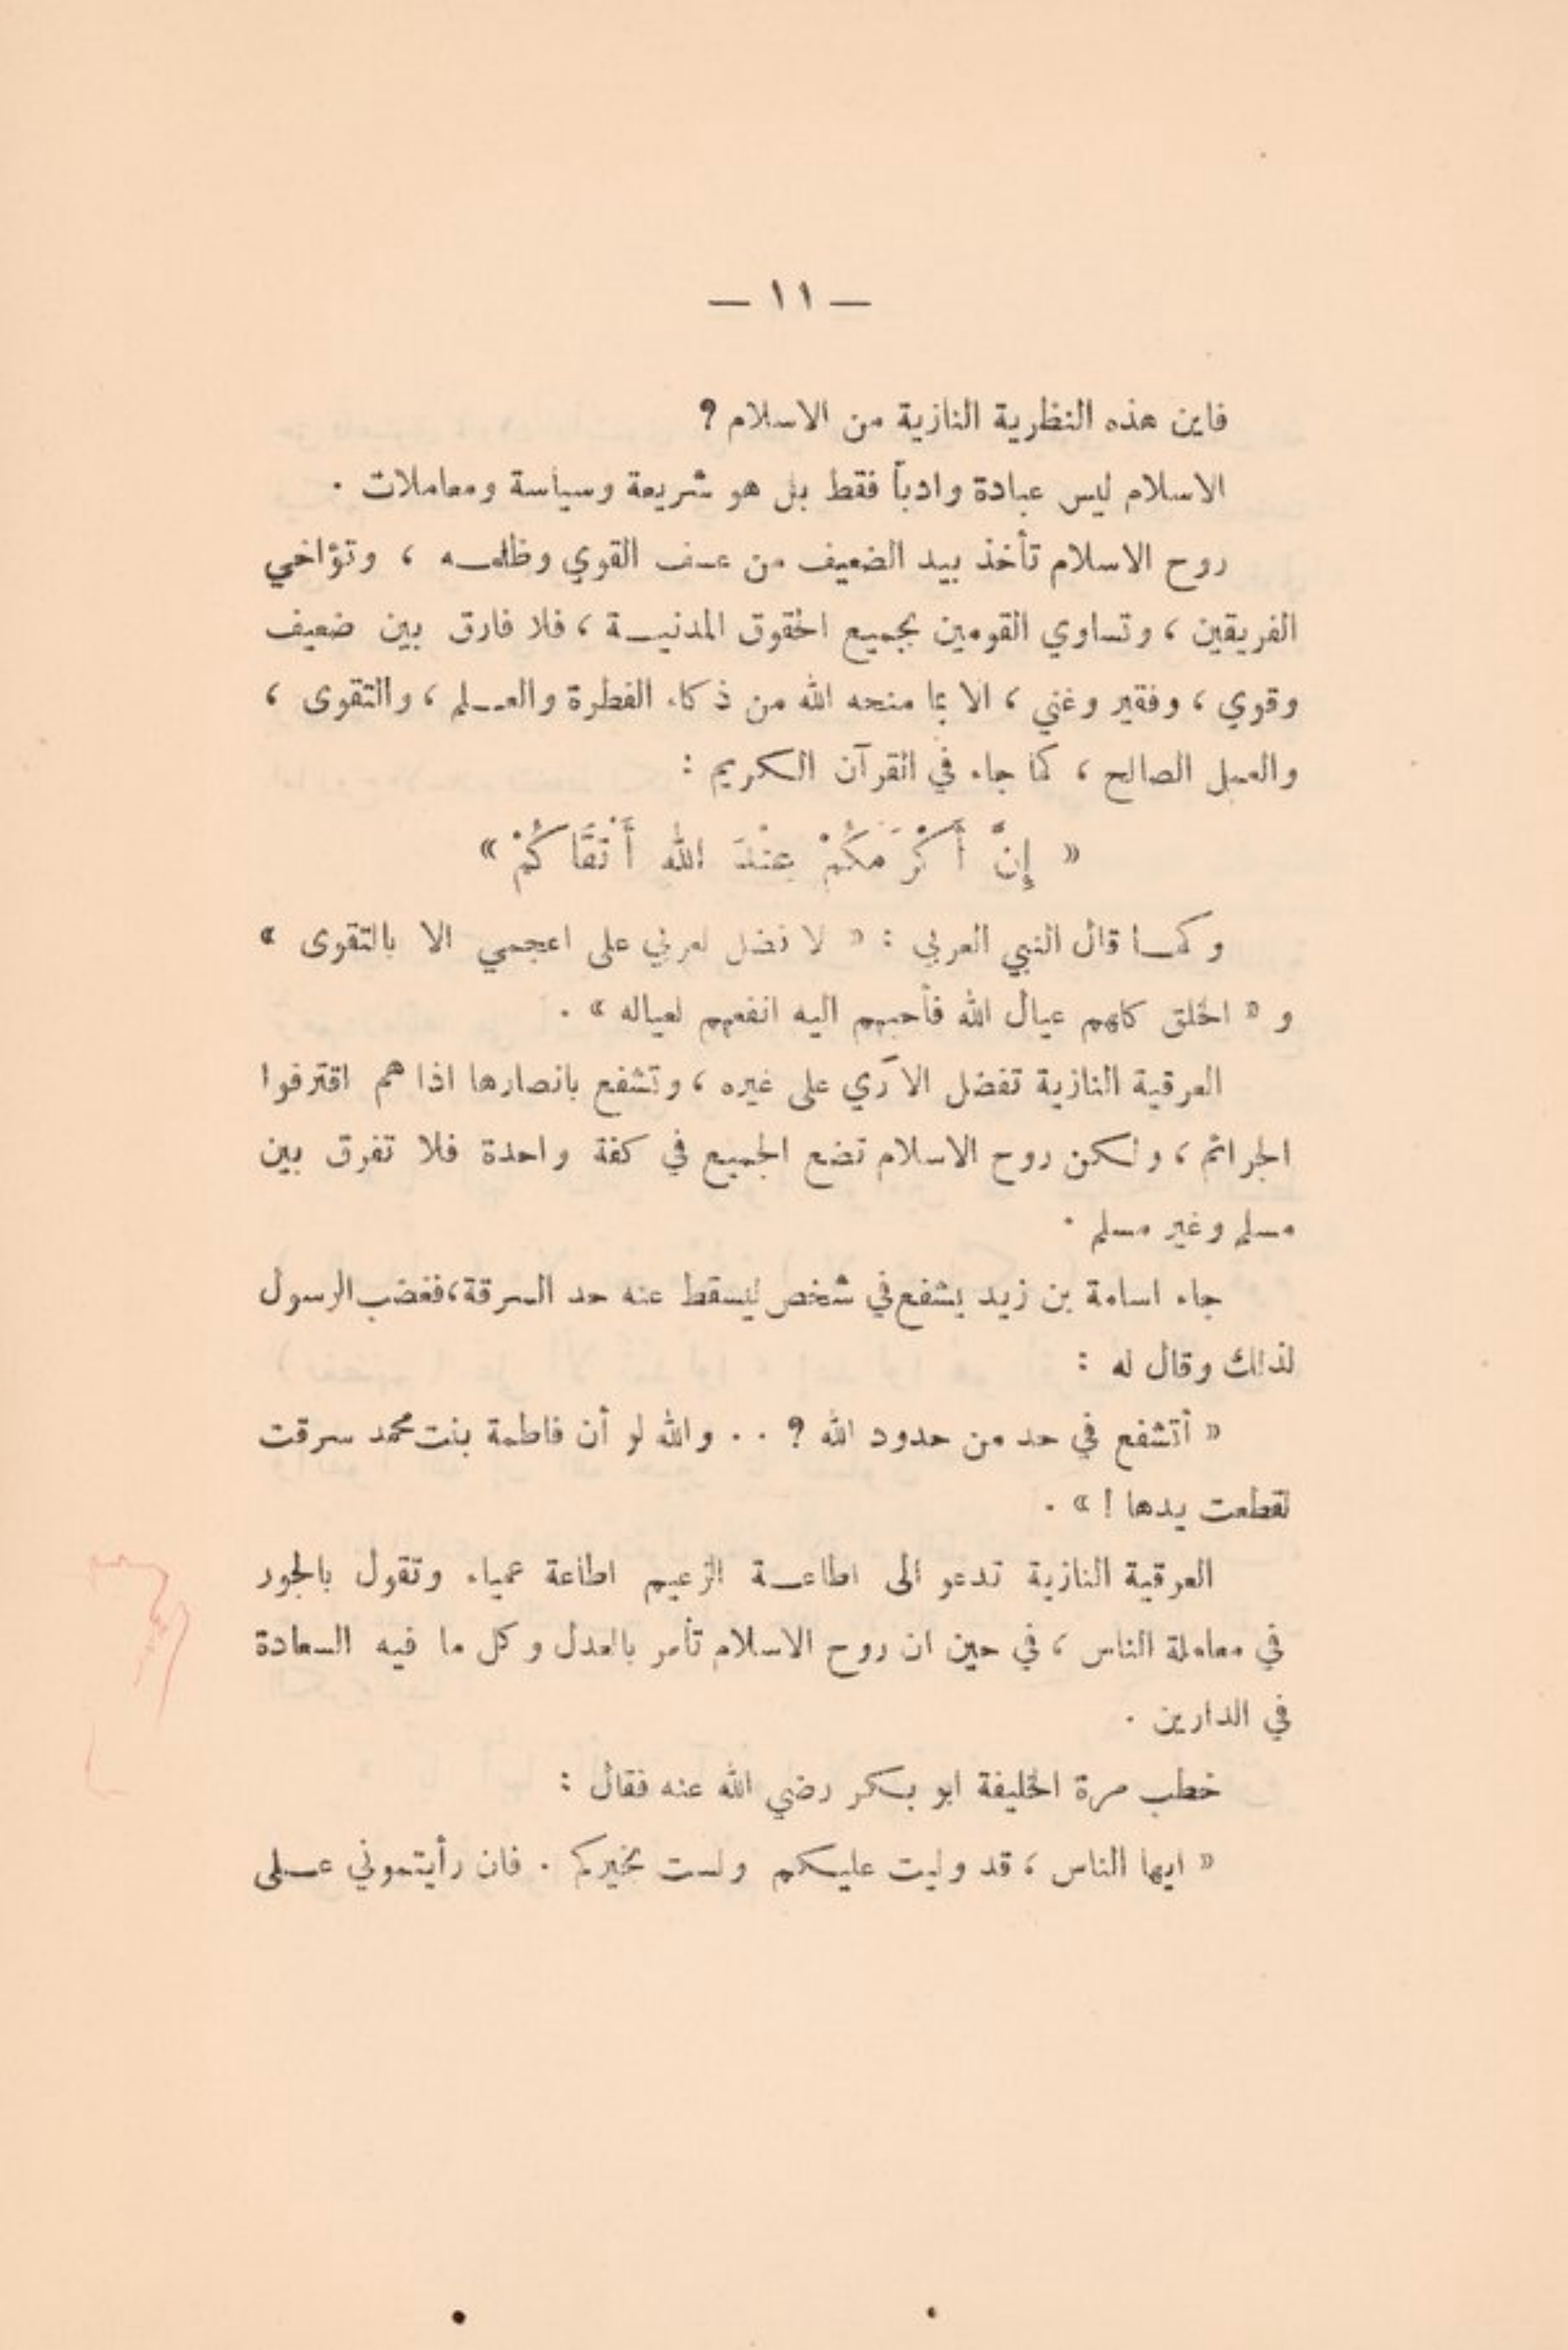 — ١١ —
فاين هذه النظرية النازية من الاسلام ؟
الاسلام ليس عبادة وادباً فقط بل هو شريعة وسياسة ومعاملات .
روح الاسلام تأخذ بيد الضعيف من عسف القوي وظلمـــه ، وتؤاخي
الفريقين ، وتساوي القومين بجميع الحقوق المدنيـــة ، فلا فارق بين ضعيف
وقوي ، وفقير وغني ، الا بما منحه الله من ذكاء الفطرة والعـــلم ، والتقوى ،
والعمل الصالح ، كما جاء في القرآن الكريم :
« إِنَّ أَكْرَمَكُمْ عِنْدَ اللهِ أَتْقَاكُمْ »
وكمـــا قال النبي العربي : « لا فضل لعربي على اعجمي الا بالتقوى »
و « الخلق كلهم عيال الله فأحبهم اليه انفعهم لعياله » .
العرقية النازية تفضل الآري على غيره ، وتشفع بانصارها اذا هم اقترفوا
الجرائم ، ولكن روح الاسلام تضع الجميع في كفة واحدة فلا تفرق بين
مسلم وغير مسلم .
جاء اسامة بن زيد يشفع في شخص ليسقط عنه حد السرقة، فغضب الرسول
لذلك وقال له :
« أتشفع في حد من حدود الله ؟ . . والله لو أن فاطمة بنت محمد سرقت
لقطعت يدها ! » .
العرقية النازية تدعو الى اطاعـــة الزعيم اطاعة عمياء وتقول بالجور
في معاملة الناس ، في حين ان روح الاسلام تأمر بالعدل وكل ما فيه السعادة
في الدارين .
خطب مرة الخليفة ابو بكر رضي الله عنه فقال :
« ايها الناس ، قد وليت عليكم ولست بخيركم . فان رأيتموني عـــلى